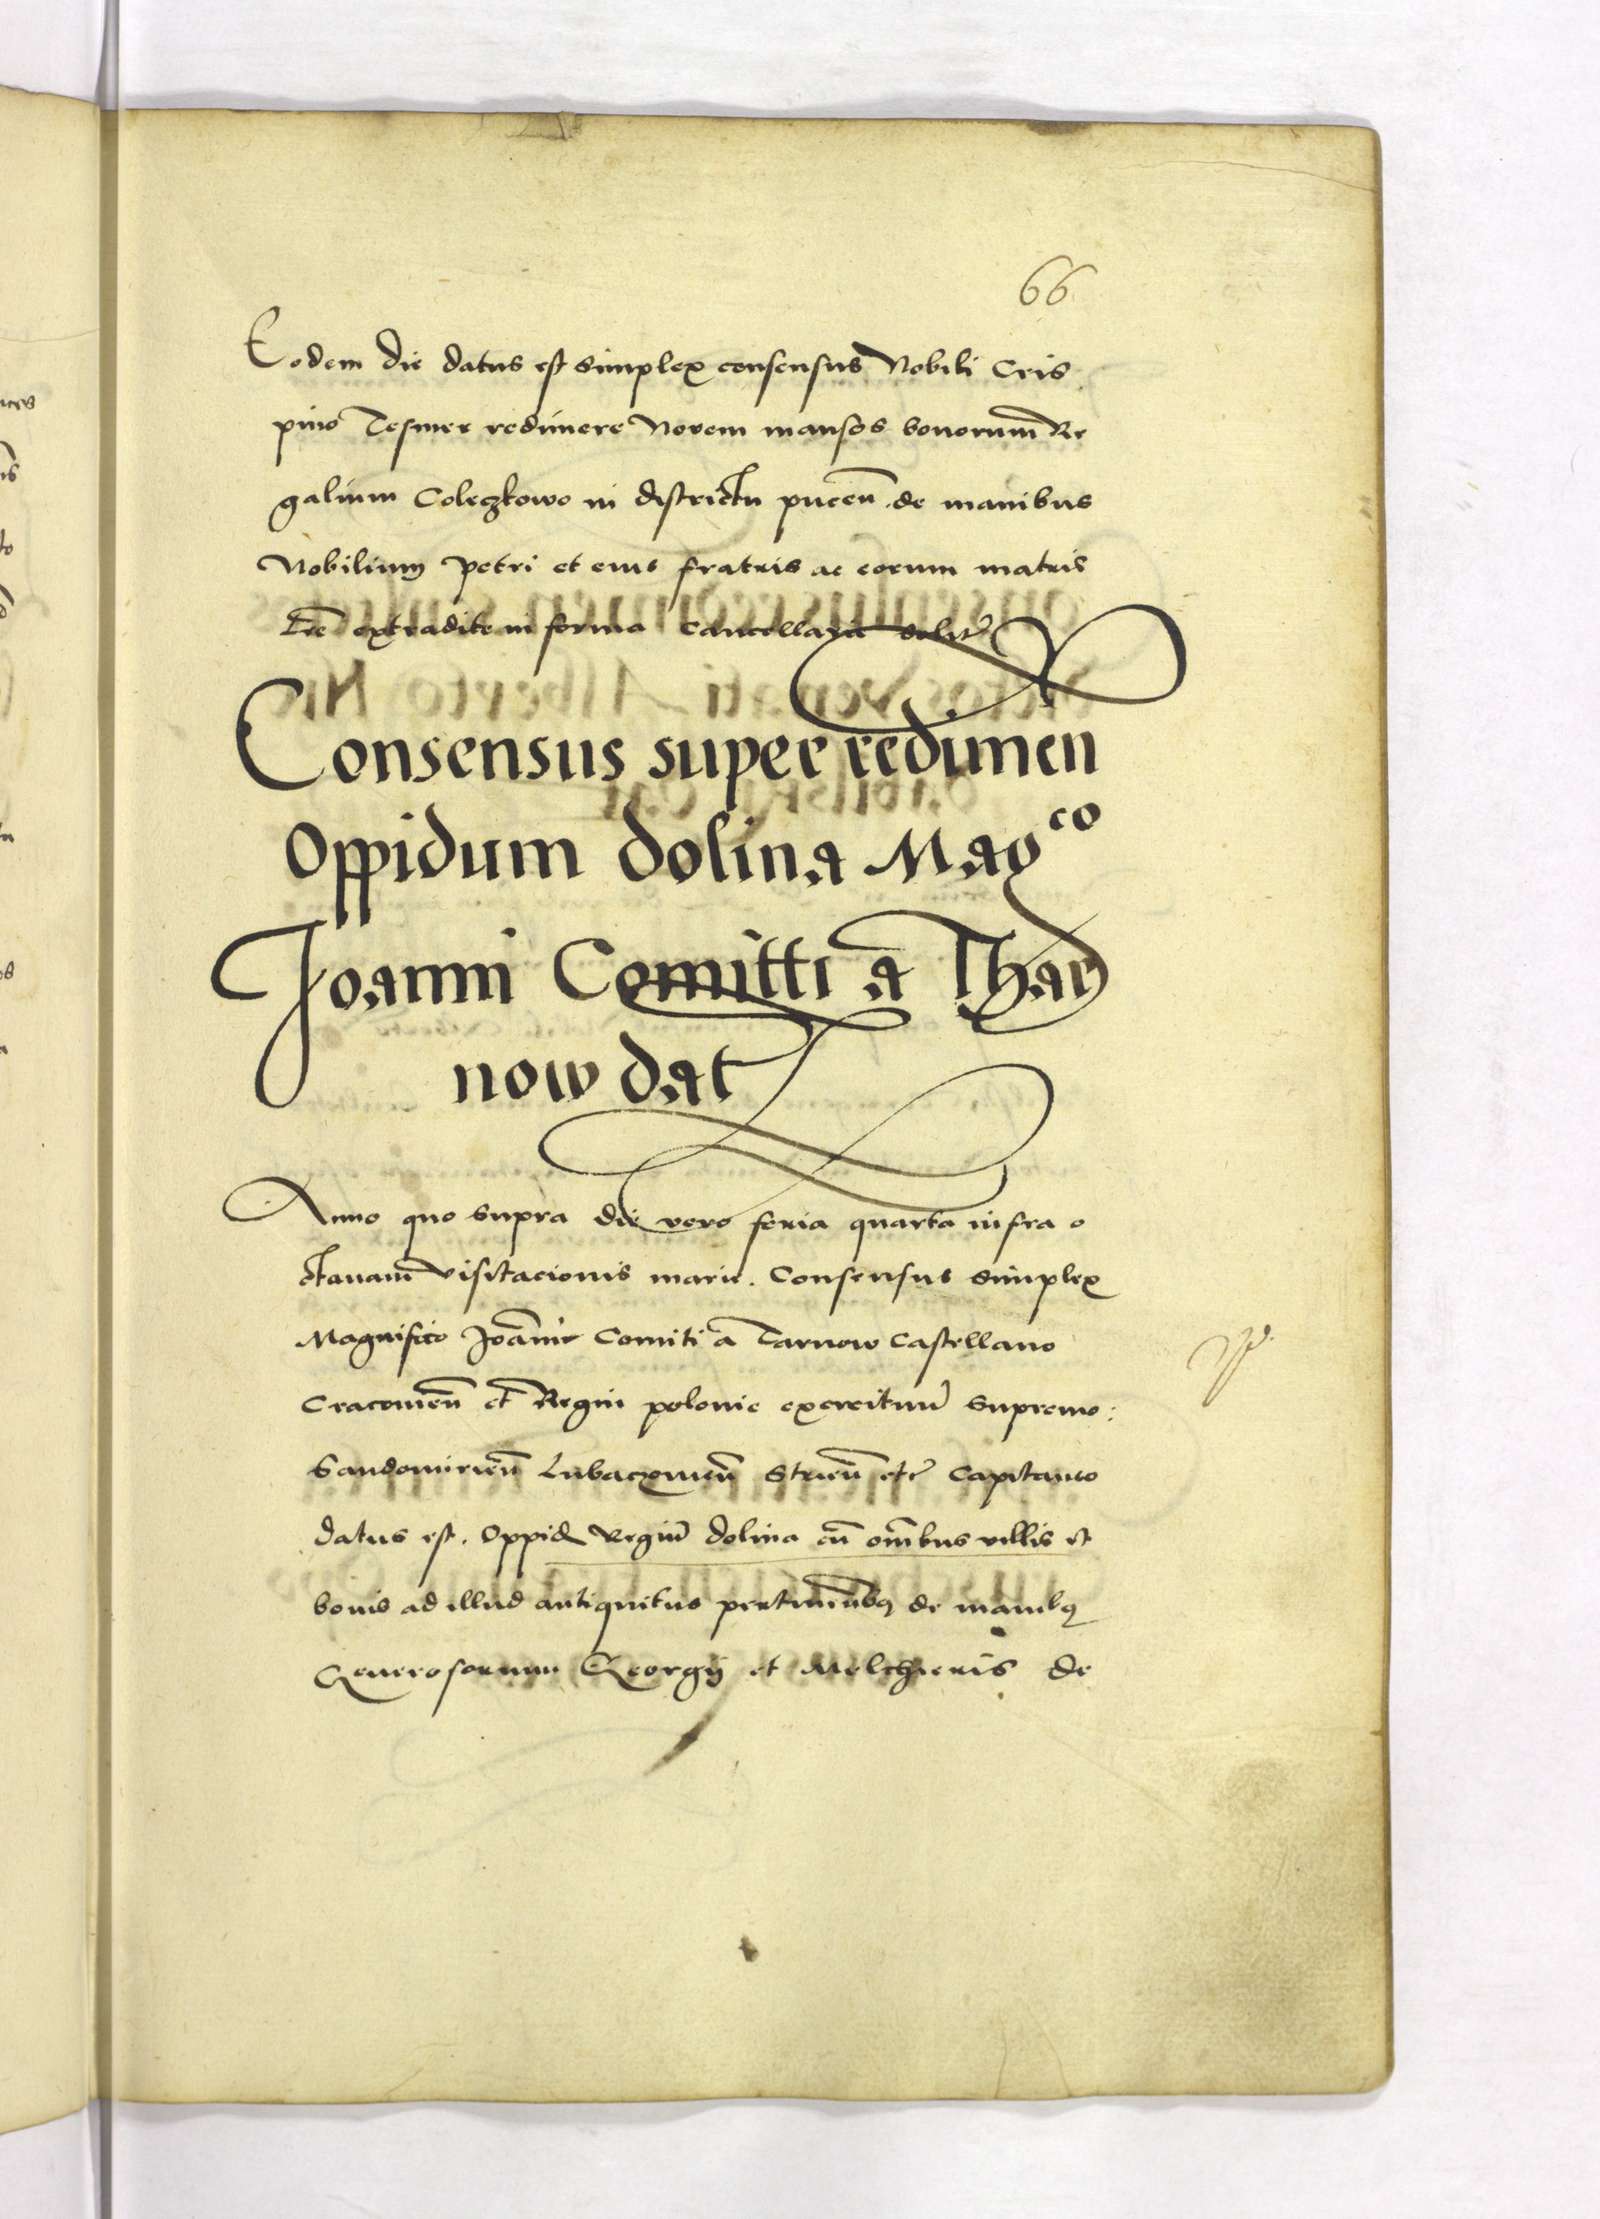 66
Eodem die datus est simplex consensus Nobili Cris
pino Tesmer redimere Novem mansos bonorum Re
galium Coleczkowo in districtu puceñ de manibus
Nobilium Petri et eius fratris ac eorum matris
Lre extradite in forma Cancellarie
Consensus super redimen
Oppidum dolina Mag^co
Joanni Comitti a Thar
now dat
Anno quo supra die vero feria quarta infra o
ctavam visitacionis marie. Consensus simplex
Magnifico Joanni Comiti a Tarnow Castellano
Cracovieñ et Regni polonie exercituũ supremo:
Sandomirieñ Lubaczovieñ Strieñ etc̃ Capitaneo
datus est. Oppid Regiũ dolina cũ om̃ibus villis et
bonis ad illud antiquitus pertineñbq de manibq
Generosorum Georgij et Melchioris de